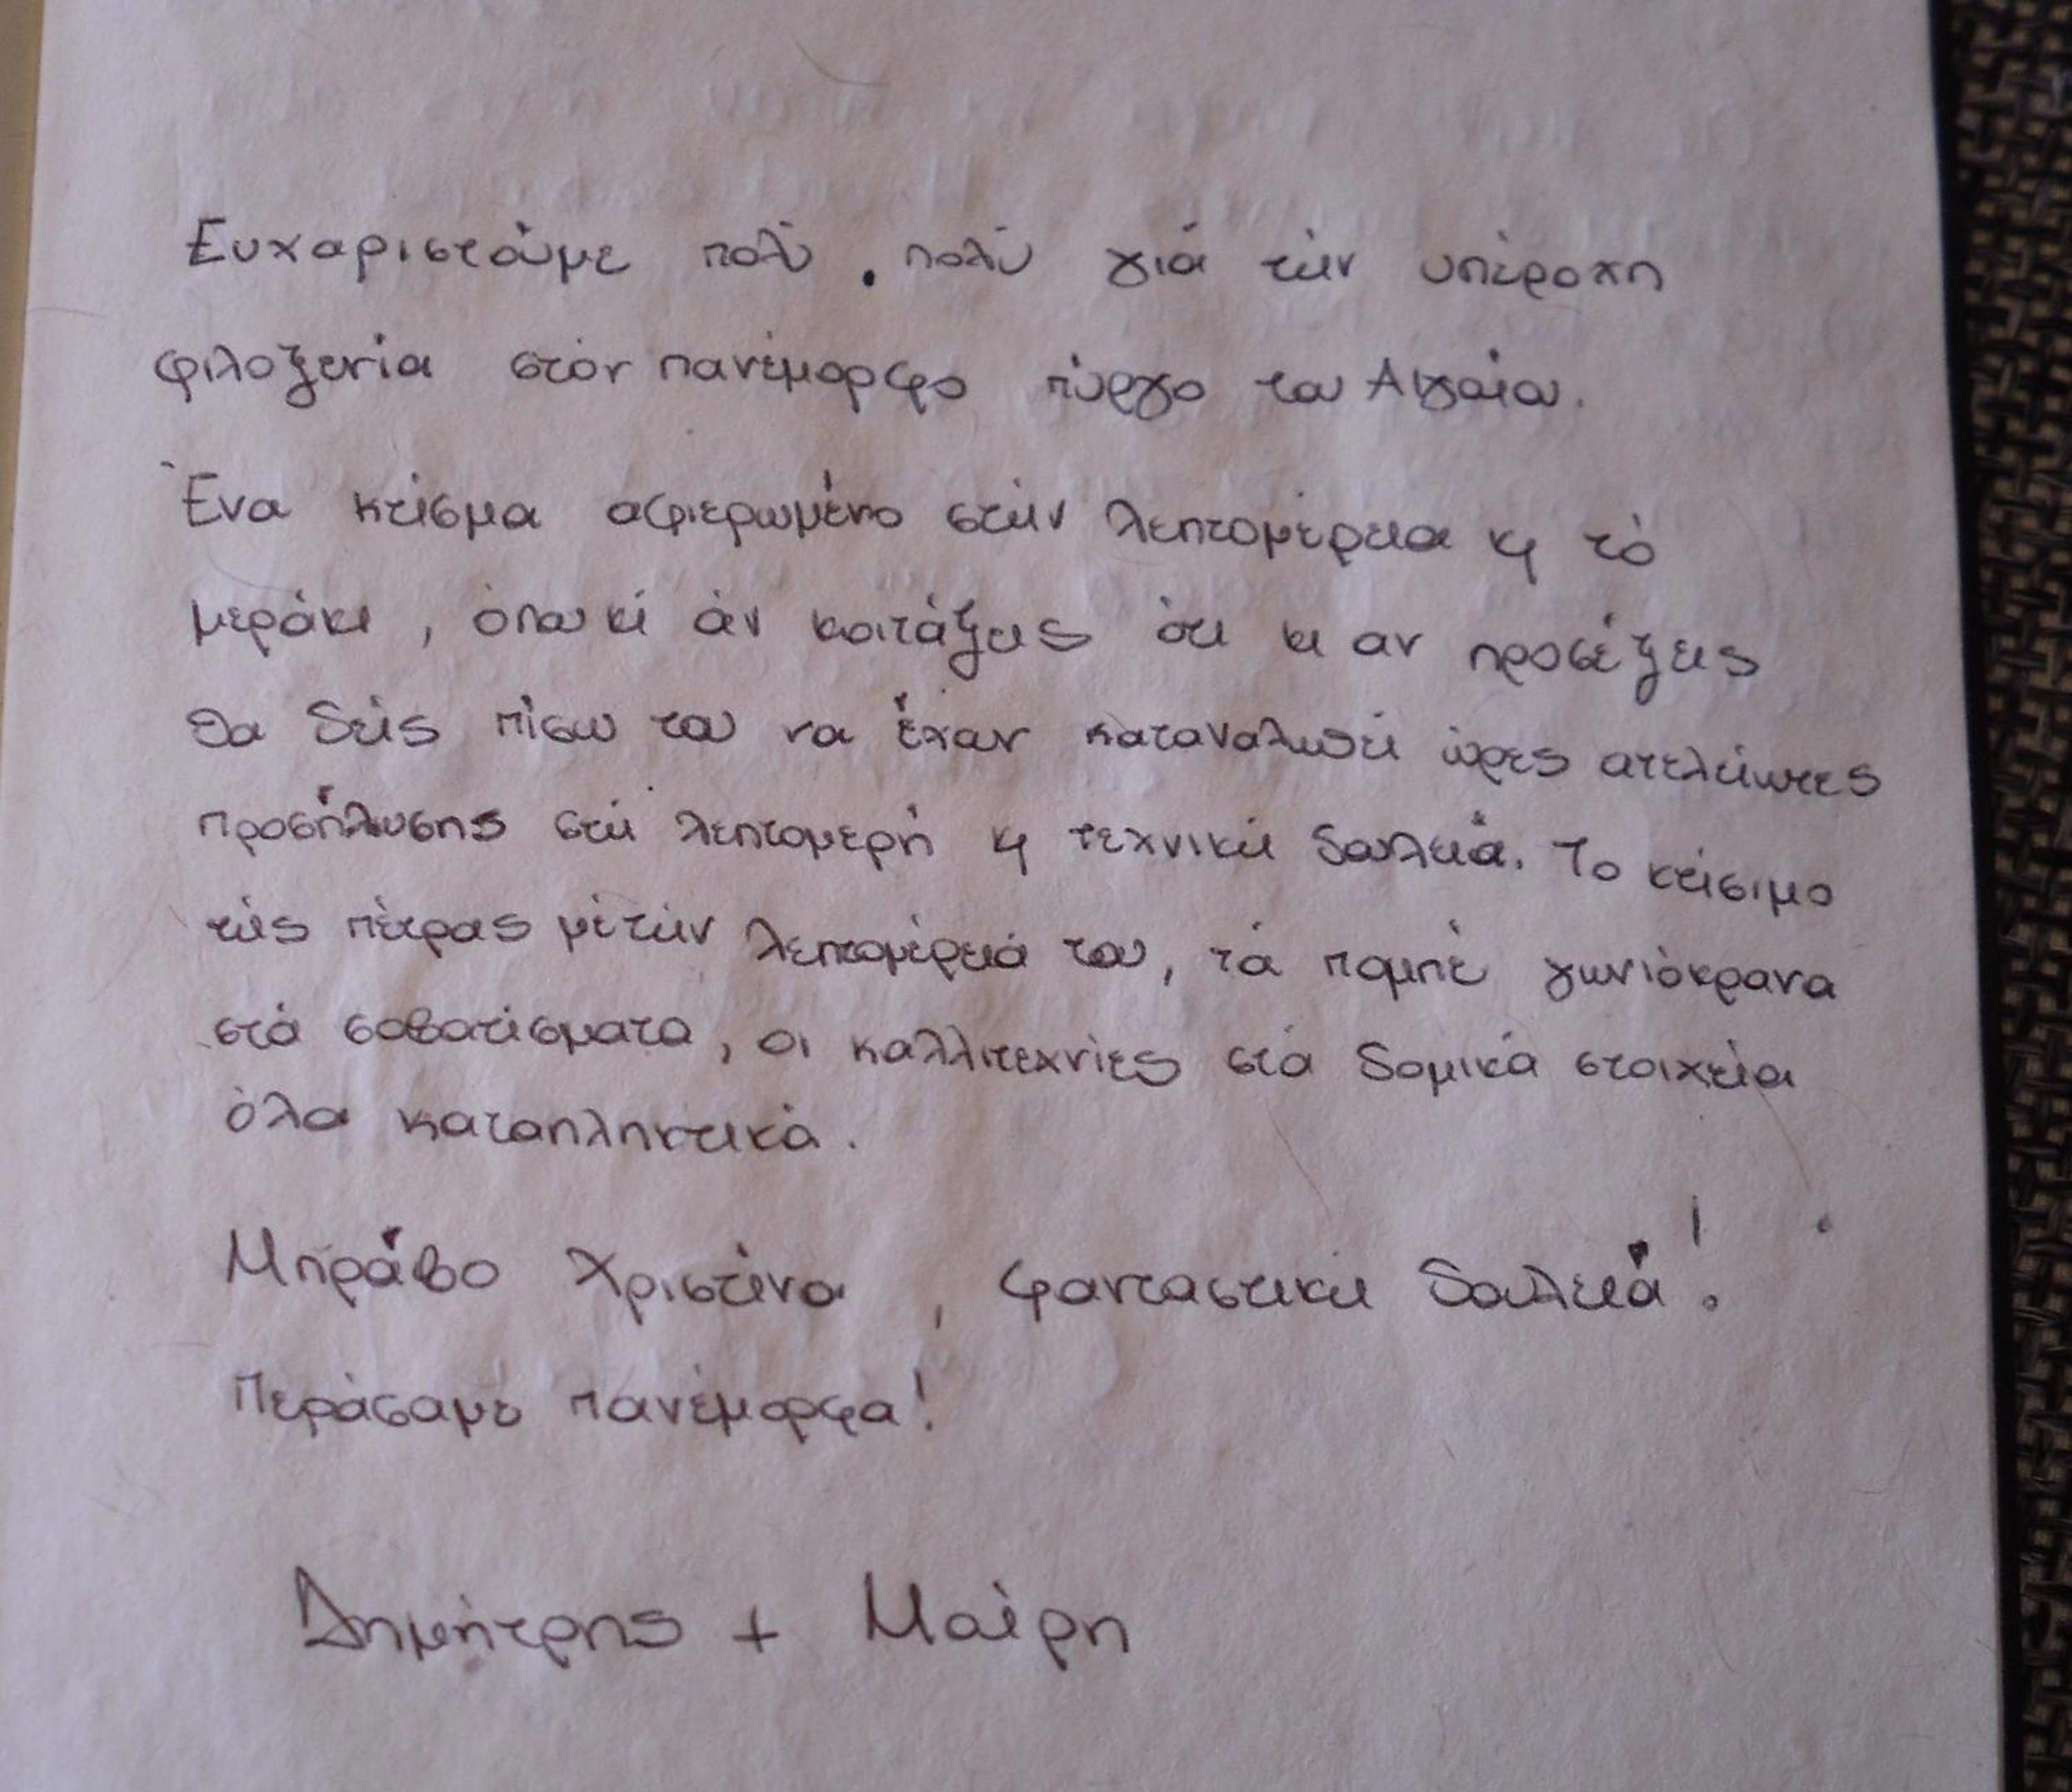 Ευχαριστούμε πολύ, πολύ γιά τήν υπέροχη
φιλοξενία στόν πανέμορφο πύργο του Αιγαίου.
Ένα κτίσμα αφιερωμένο στήν λεπτομέρεια κ τό
μεράκι, όπου κί άν κοιτάξεις ότι κι αν προσέξεις
θα δείς πίσω του να έχουν καταναλωθεί ώρες ατελείωτες
προσήλωσης στή λεπτομερή κ τεχνική δουλειά. Το κτίσιμο
τής πέτρας μέ τήν λεπτομέρειά του, τά πομπέ γωνιόκρανα
στά σοβατίσματα, οι καλλιτεχνίες στά δομικά στοιχεία
όλα καταπληκτικά.
Μπράβο Χριστίνα, φανταστική δουλειά!
Περάσαμε πανέμορφα!
Δημήτρης + Μαίρη